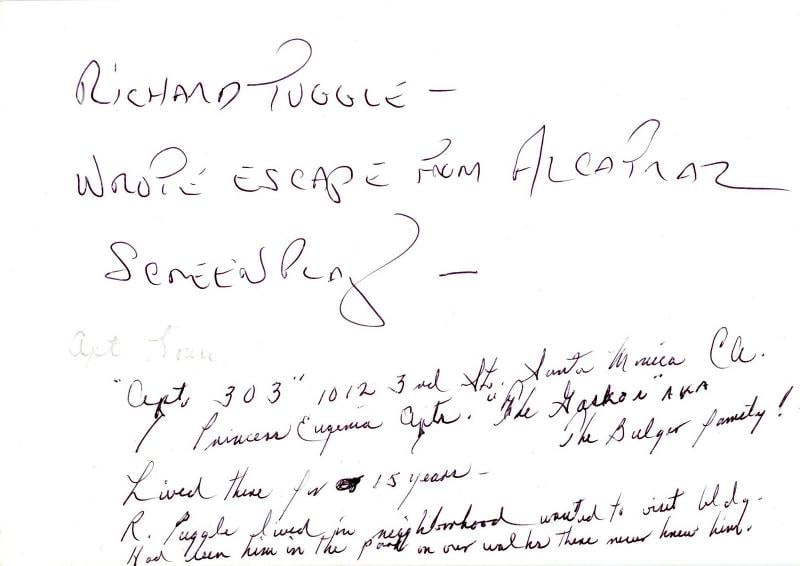 RICHARD TUGGLE –
WROTE ESCAPE FROM ALCATRAZ
SCREENPLAY –
Apt
"Apt. 303" 1012 3rd St. Santa Monica CA.
Princess Eugenia Apts. "The Gaskos" AKA
The Bulger family!
Lived there for 15 years –
R. Tuggle lived in neighborhood wanted to visit bldg.
Had seen him in the park on our walks there never knew him.